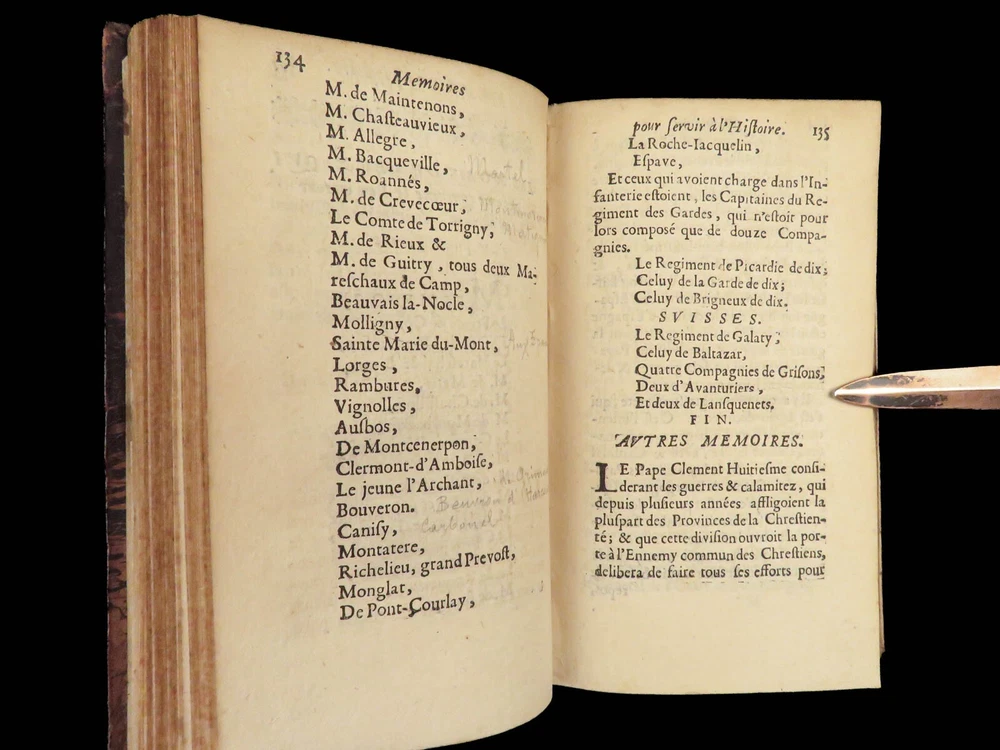 134
Memoires
M. de Maintenons,
M. Chaſteauvieux,
M. Allegre,
M. Bacqueville,
M. Roannés,
M. de Crevecœur;
Le Comte de Torrigny;
M. de Rieux &
M. de Guitry, tous deux Ma-
reſchaux de Camp,
Beauvais la-Nocle,
Molligny,
Sainte Marie du-Mont,
Lorges,
Rambures,
Vignolles,
Auſbos,
De Montcenerpon;
Clermont-d'Amboiſe,
Le jeune l'Archant,
Bouveron.
Caniſy,
Montatere,
Richelieu, grand Prevoſt,
Monglat,
De Pont-Courlay,
Carbonel
pour ſervir à l'Hiſtoire. 135
La Roche-Iacquelin,
Eſpave,
Et ceux qui avoient charge dans l'In-
fanterie eſtoient, les Capitaines du Re-
giment des Gardes, qui n'eſtoit pour
lors compoſé que de douze Compa-
gnies.
Le Regiment de Picardie de dix;
Celuy de la Garde de dix;
Celuy de Brigneux de dix.
SVISSES.
Le Regiment de Galaty;
Celuy de Baltazar,
Quatre Compagnies de Griſons;
Deux d'Avanturiers,
Et deux de Lanſquenets.
FIN.
AVTRES MEMOIRES.
LE Pape Clement Huitieſme conſi-
derant les guerres & calamitez, qui
depuis pluſieurs années affligoient la
pluſpart des Provinces de la Chreſtien-
té; & que cette diviſion ouvroit la por-
te à l'Ennemy commun des Chreſtiens,
delibera de faire tous ſes efforts pour